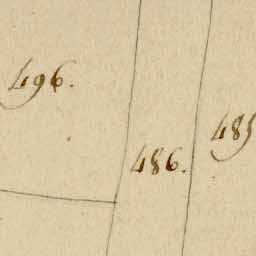 496.
486.
485